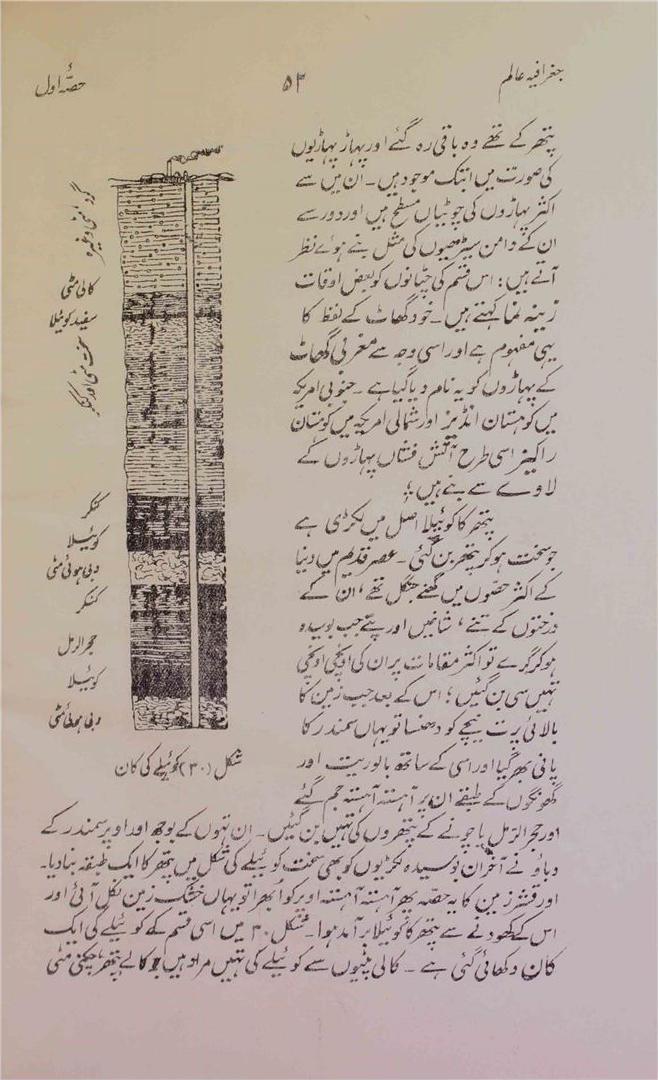 جغرافیہ عالم
۵۴
حصّۂ اول
پتھر کے تھے وہ باقی رہ گئے اور پہاڑ پہاڑیوں
کی صورت میں ابتک موجود ہیں۔ ان میں سے
اکثر پہاڑوں کی چوٹیاں مسطح ہیں اور دور سے
ان کے دامن سیڑھیوں کی مثل بنے ہوئے نظر
آتے ہیں؛ اس قسم کی چٹانوں کو بعض اوقات
زینہ نما کہتے ہیں۔ خود گھاٹ کے لفظ کا
یہی مفہوم ہے اور اسی وجہ سے مغربی گھاٹ
کے پہاڑوں کو یہ نام دیا گیا ہے۔ جنوبی امریکہ
میں کوہستان انڈیز اور شمالی امریکہ میں کوہستان
راکیز اسی طرح آتش فشاں پہاڑوں کے
لاوے سے بنے ہیں؛
پتھر کا کوئیلا اصل میں لکڑی ہے
جو سخت ہو کر پتھر بن گئی۔ عصر قدیم میں دنیا
کے اکثر حصّوں میں گھنے جنگل تھے، ان کے
درختوں کے تنے، شاخیں اور پتّے جب بوسیدہ
ہو کر گرے تو اکثر مقامات پر ان کی اونچی اونچی
تہیں سی بن گئیں؛ اس کے بعد جب زمین کا
بالائی پرت نیچے کو دھنسا تو یہاں سمندر کا
پانی بھر گیا اور اسی کے ساتھ بالو ریت اور
گھونگوں کے طبقے ان پر آہستہ آہستہ جم گئے
اور حجر الرمل یا چونے کے پتھروں کی تہیں بن گئیں۔ ان تہوں کے بوجھ اور اوپر سمندر کے
دباؤ نے آخر ان بوسیدہ لکڑیوں کو بھی سخت کوئیلے کی شکل میں پتھر کا ایک طبقہ بنا دیا۔
اور قشر زمین کا یہ حصّہ پھر آہستہ آہستہ اوپر کو ابھرا تو یہاں خشک زمین نکل آئی اور
اس کے کھودنے سے پتھر کا کوئیلا برآمد ہوا۔ شکل ۳۰ میں اسی قسم کے کوئیلے کی ایک
کان دکھائی گئی ہے۔ کالی پٹیوں سے کوئیلے کی تہیں مراد ہیں جو کالے پتھر، چکنی مٹی
مٹی وغیرہ
کالی مٹی
سفید کوئیلا
سخت مٹی اور کنکر
کنکر
کوئیلا
دبی ہوئی مٹی
کنکر
حجر الرمل
کوئیلا
دبی ہوئی مٹی
شکل (۳۰) کوئیلے کی کان